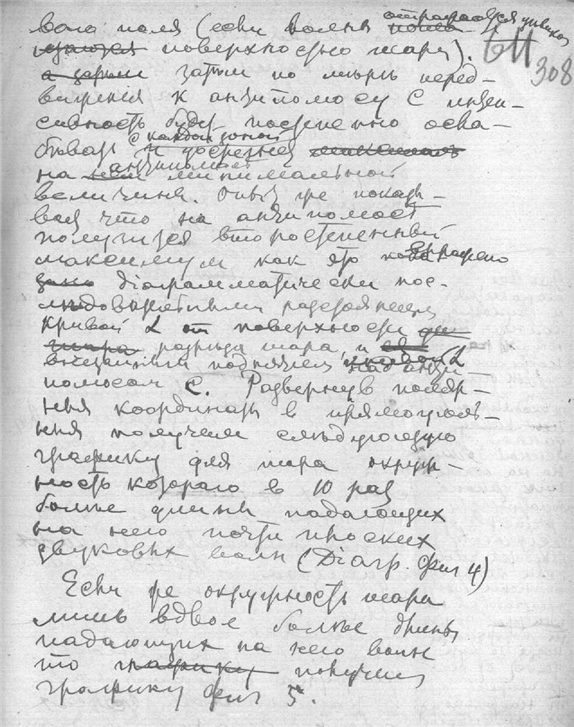 вого поля (если волны отражаются целиком
поверхностью шара).
а затем по мѣрѣ перед-
виженія к антиполюсу С интен-
сивность будет постепенно осла-
бѣвать с каждой зоной и достигнет
на антиполюсѣ минимальной
величины. Опыт же показы-
вал что на антиполюсѣ
получится второстепенный
максимум как это выражено
діаграмматически пос-
лѣдовательными расстояніем
кривой L от поверхности
шара разрѣза шара, и
внезапным поднятием L над анти-
полюсом С. Развернув поляр-
ныя координаты в прямоуголь-
ныя получаем слѣдующую
графику для шара окруж-
ность котораго в 10 раз
болѣе длины падающих
на него почти плоских
звуковых волн (Діагр. фиг 4)
Если же окружность шара
лишь вдвое болѣе длины
падающих на него волн
то графику получим
графику фиг 5.
БП
308